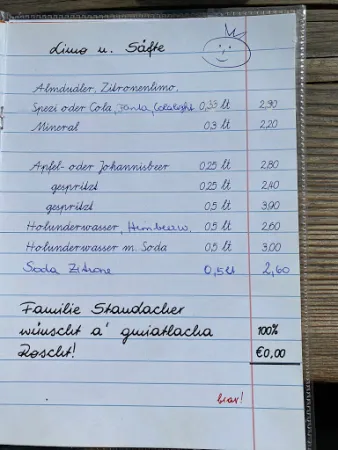 Limo u. Säfte
Almdudler, Zitronenlimo,
Spezi oder Cola, Fanta, Colalight 0,33 lt 2,90
Mineral 0,3 lt 2,20
Apfel- oder Johannisbeer 0,25 lt 2,80
gespritzt 0,25 lt 2,40
gespritzt 0,5 lt 3,90
Holunderwasser, Himbeerw. 0,5 lt 2,60
Holunderwasser m. Soda 0,5 lt 3,00
Soda Zitrone 0,5 lt 2,60
Familie Staudacher
wünscht a' guiatlacha 100%
Roscht! €0,00